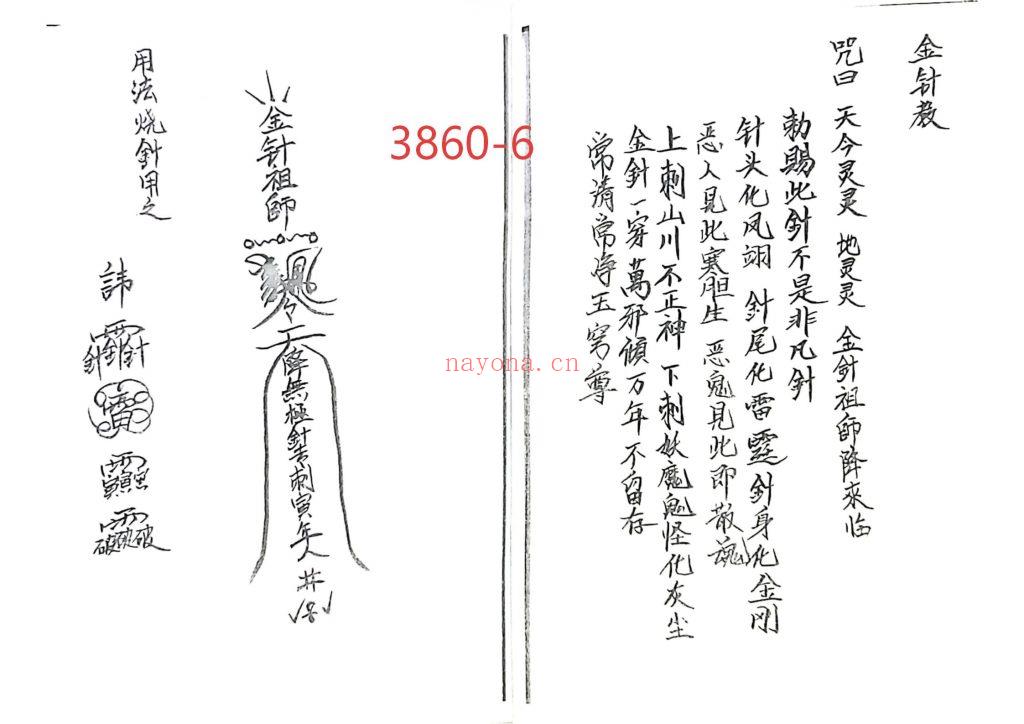 金针教
咒曰 天今灵灵 地灵灵 金針祖師降來临
勅賜此針不是非凡針
针头化凤翊 針尾化雷霆 針身化金刚
恶人見此寒胆生 恶鬼見此即散魂
上刺山川不正神 下刺妖魔鬼怪化灰尘
金針一穿萬邪傾万年不留存
常清常净玉穷尊
3860-6
nayona.cn
金针祖師
降無極針刺寅年人
用法烧針用之
諱